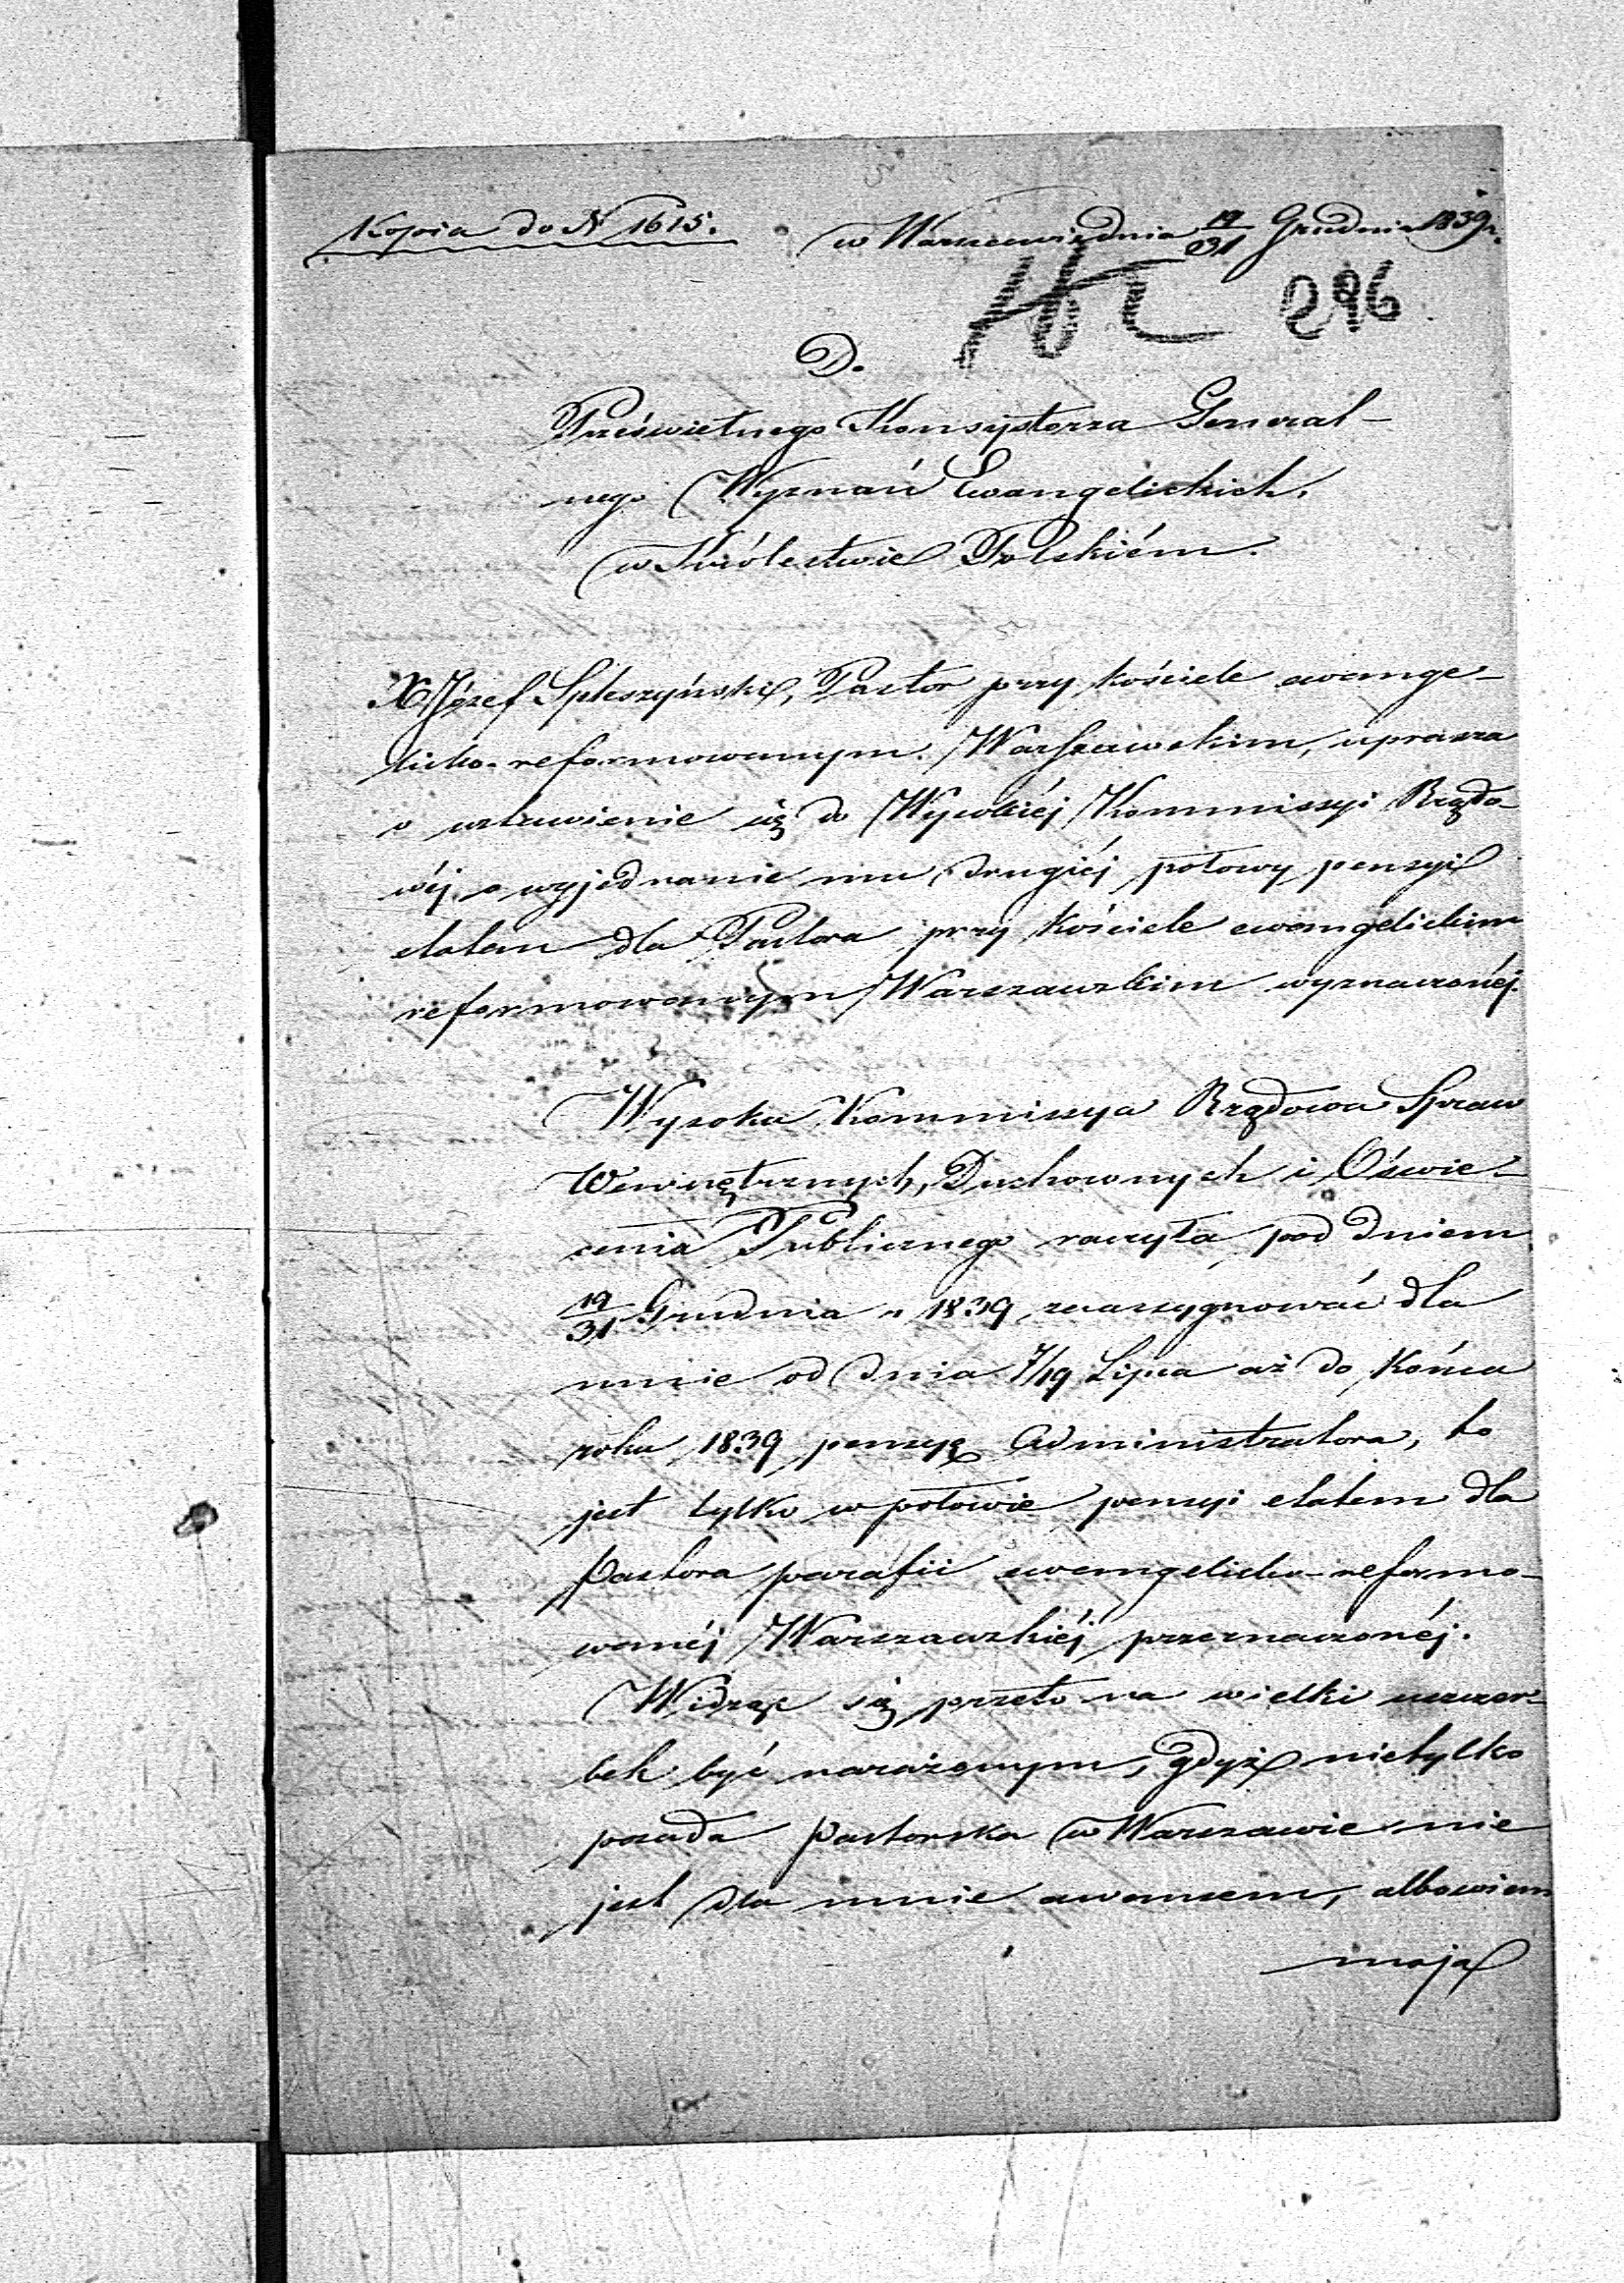 Kopia do N 1615.
w Warszawie dnia 19/31 Grudnia 1839 r.
296
D.
Prześwietnego Konsystorza General-
nego Wyznań Ewangelickich,
w Królestwie Polskiém.
X Józef Spleszyński, Pastor przy kościele ewange-
licko-reformowanym Warszawskim, uprasza
o wstawienie się do Wysokiéj Kommissyi Rządo-
wéj o wyjednanie mu drugiéj połowy pensyi
etatem dla Pastora przy kościele ewangelickim
reformowanym Warszawskim wyznaczonéj.
Wysoka Kommissya Rządowa Spraw
Wewnętrznych, Duchownych i Oświe-
cenia Publicznego raczyła pod dniem
19/31 Grudnia r 1839 zaassygnować dla
mnie od dnia 7/19 Lipca aż do końca
roku 1839 pensyę Administratora, to
jest tylko w połowie pensyi etatem dla
Pastora parafii ewangelicko-reformo-
wanéj Warszawskiéj przeznaczonéj.
Widzę się przeto na wielki uszczer-
bek być narażonym, gdyż nietylko
posada Pastorska w Warszawie nie
jest dla mnie awansem, albowiem
moja